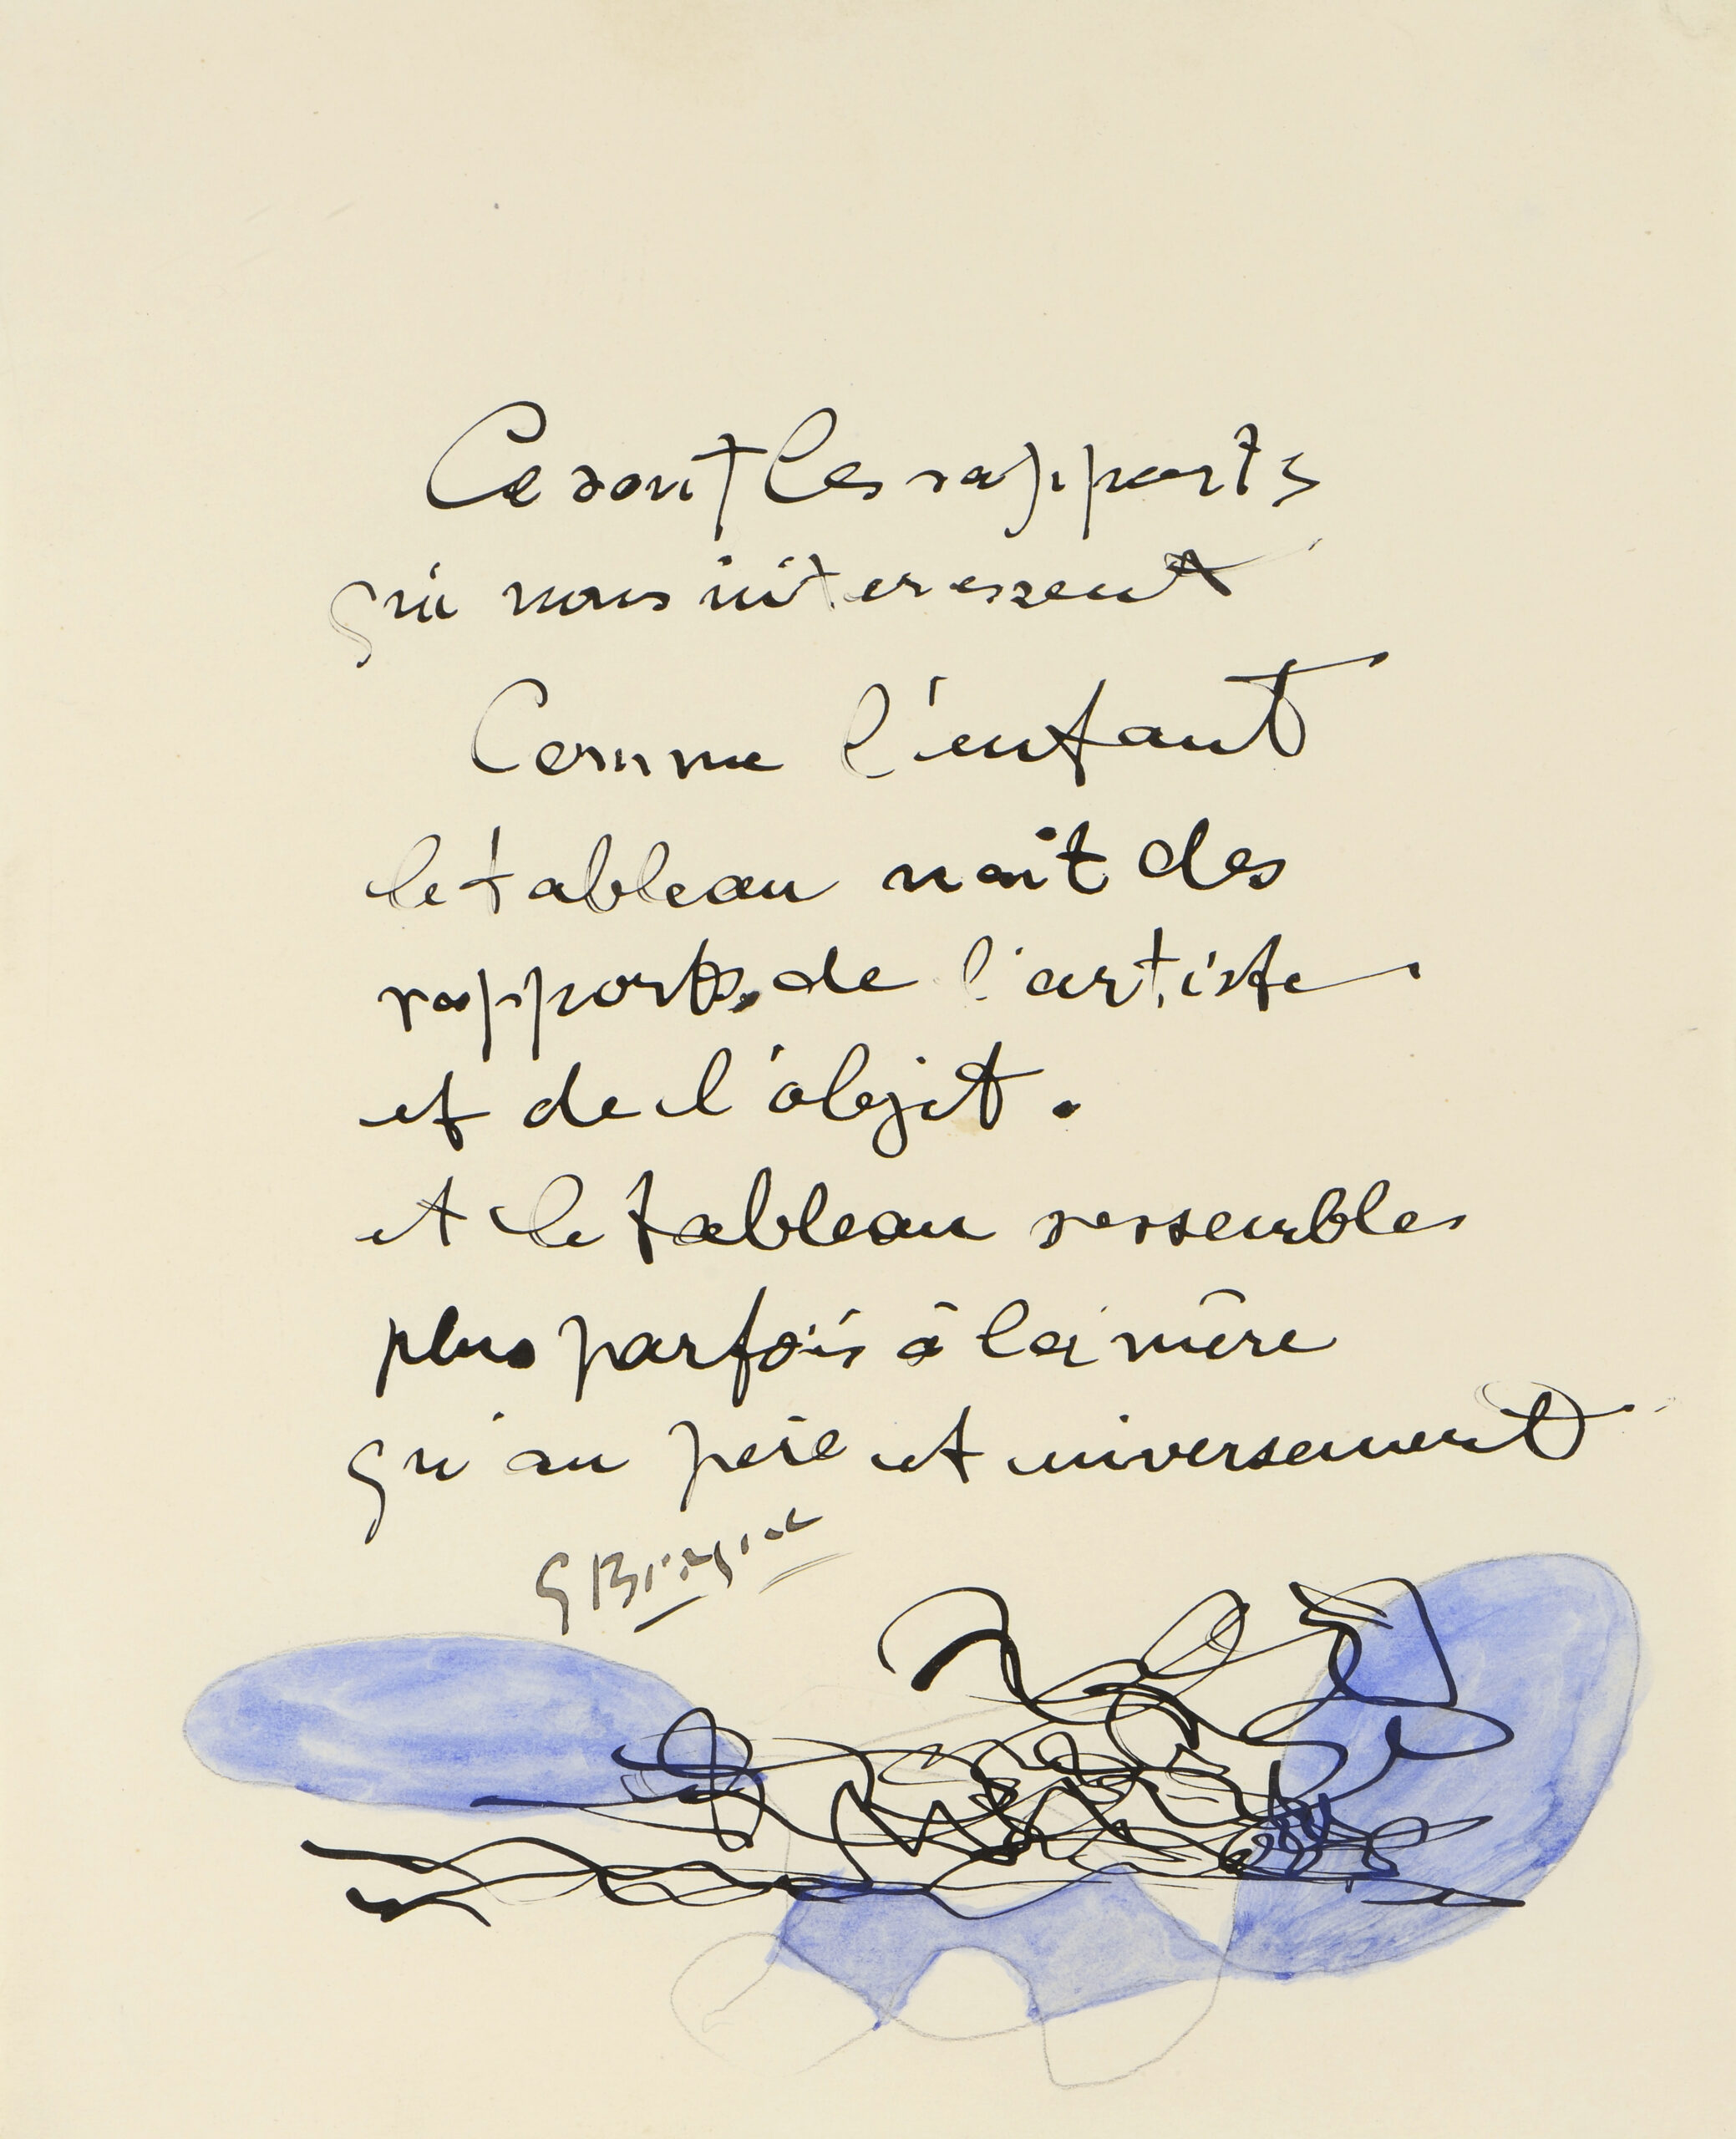 Ce sont les rapports
qui nous interessent
Comme l'enfant
le tableau nait des
rapports de l'artiste
et de l'objet.
et le tableau ressemble
plus parfois à la mère
qu'au père et inversement
G Braque